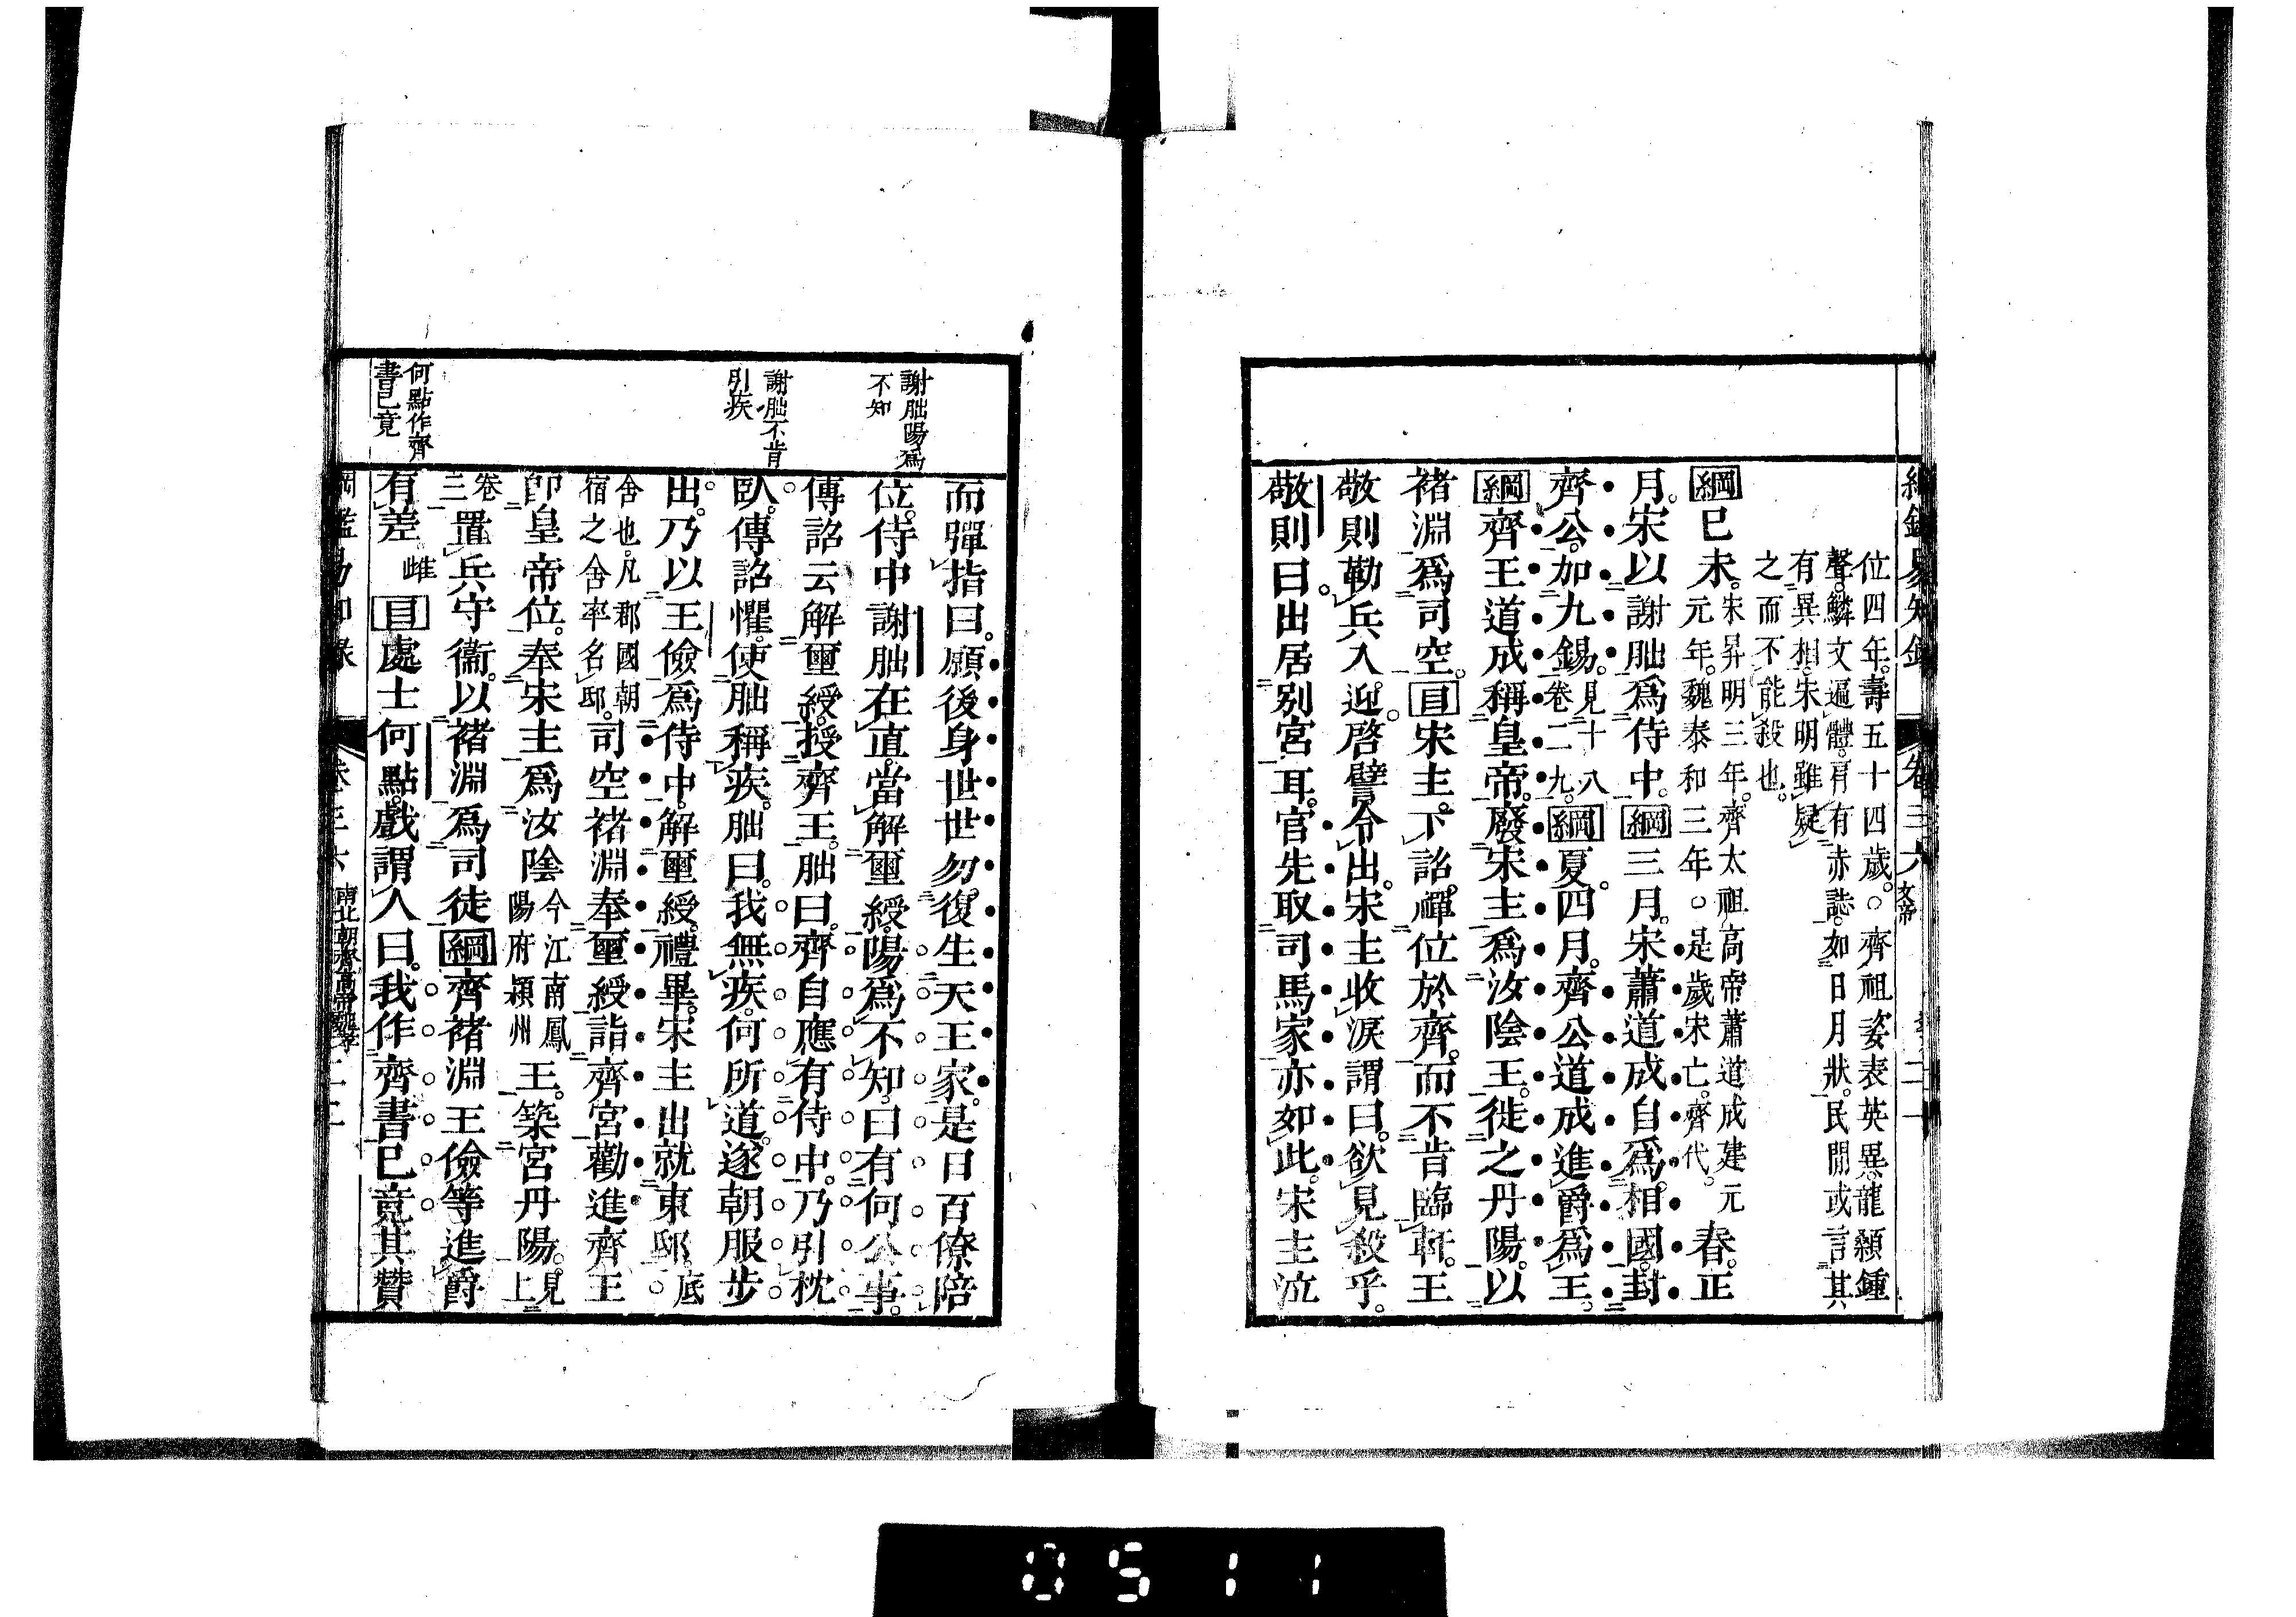 位四年。壽五十四歲。○齊祖姿表英異。龍顙鍾
聲。鱗文遍體。肩有赤誌。如日月狀。民間或言其
有異相。宋明雖疑
之而不能殺也。
綱己未。宋昇明三年。齊太祖高帝蕭道成建元
元年。魏泰和三年。○是歲宋亡。齊代。春。正
月。宋以謝朏爲侍中。綱三月。宋蕭道成自爲相國。封
齊公。加九錫。見十八
卷二九。綱夏。四月。齊公道成進爵爲王。
綱齊王道成稱皇帝。廢宋主爲汝陰王。徙之丹陽。以
褚淵爲司空。目宋主。下詔。禪位於齊。而不肯臨軒。王
敬則勒兵入迎。啓譬令出。宋主收淚謂曰。欲見殺乎。
敬則曰。出居別宮耳。官先取司馬家亦如此。宋主泣
謝朏陽爲
不知
謝朏不肯
引疾
何點作齊
書已竟
而彈指曰。願後身世世勿。復生天王家。是日百僚陪
位。侍中謝朏在直。當解璽綬。陽爲不知。曰有何公事。
傳詔云。解璽綬。授齊王。朏曰。齊自應有侍中。乃引枕
臥。傳詔懼。使朏稱疾。朏曰。我無疾。何所道。遂朝服步
出。乃以王儉爲侍中。解璽綬。禮畢。宋主出就東邸。底
舍也。凡郡國朝
宿之舍率名邸。司空褚淵奉璽綬詣齊宮勸進齊王
卽皇帝位。奉宋主爲汝陰今江南鳳
陽府潁州王。築宮丹陽。見
上
卷
三置兵守衞。以褚淵爲司徒綱齊褚淵王儉等進爵
有差。雌目處士何點。戲謂人曰。我作齊書已竟其贊
綱鑑易知錄 卷三六 南北朝齊高帝 二二